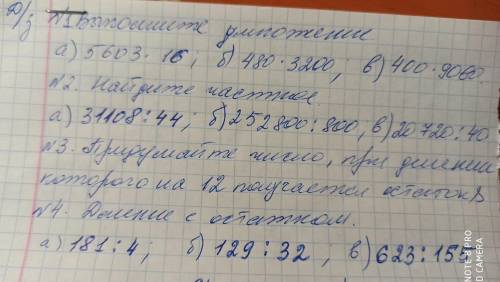 Д/з №1 Выполните умножение
а) 5603 · 16; б) 480 · 3200; в) 400 · 9060.
№2. Найдите частное.
а) 31108 : 44; б) 252800 : 800, в) 20720 : 40
№3. Придумайте число, при делении
которого на 12 получается остаток 8
№4. Деление с остатком.
а) 181 : 4; б) 129 : 32, в) 623 : 155
NOTE 8 PRO
D CAMERA